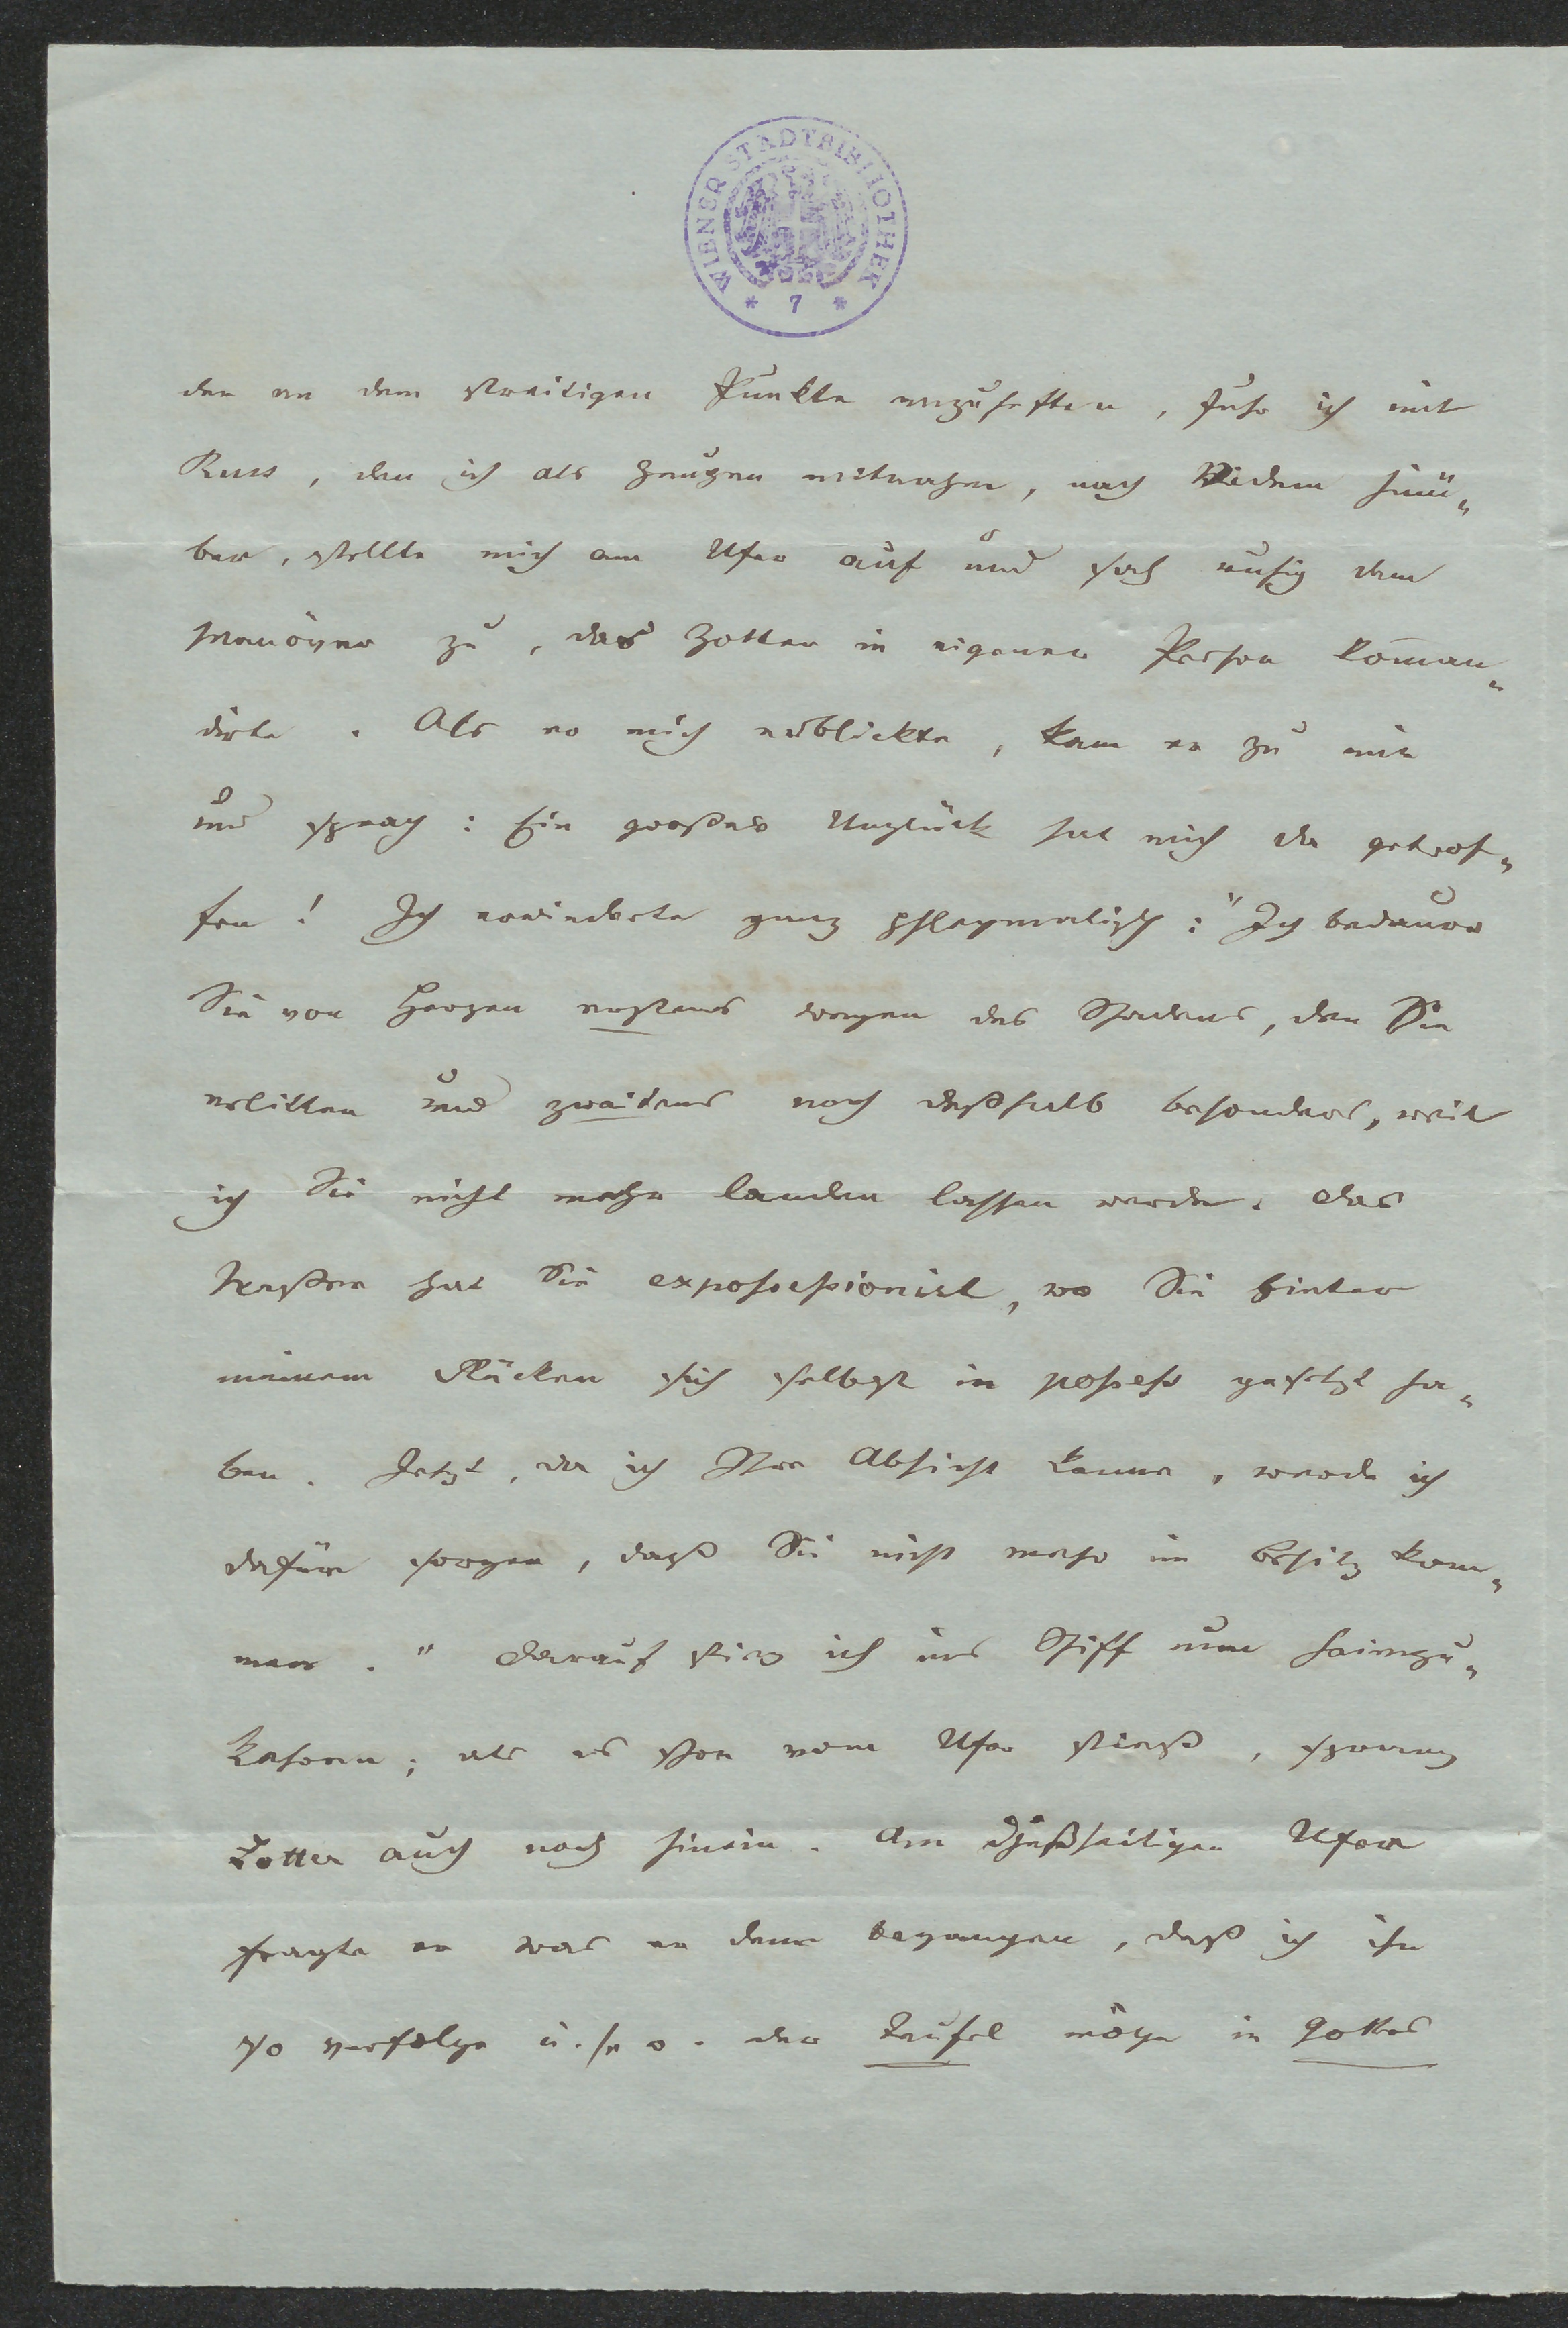 WIENER STADTBIBLIOTHEK
* 7 *
der an dem streitigen Punkte anzuheften, fuhr ich mit
Russ, den ich als Zeugen mitnahm, nach Widem hinü-
ber, stellte mich am Ufer auf und sah ruhig dem
Manöver zu, das Zotter in eigener Person koman-
dirte. Als er mich erblickte, kam er zu mir
und sprach: Ein großes Unglück hat mich da getrof-
fen! Ich erwiederte ganz phlegmatisch: "Ich bedaure
Sie von Herzen erstens wegen des Schadens, den Sie
erlitten und zweitens noch deßhalb besonders, weil
ich Sie nicht mehr landen lassen werde. Das
Wasser hat Sie expossessionirt, wo Sie hinter
meinem Rücken sich selbst in possess gesetzt ha-
ben. Jetzt, da ich Ihre Absicht kenne, werde ich
dafür sorgen, daß Sie nicht mehr in Besitz kom-
men." Darauf stieg ich ins Schiff um heimzu-
kehren; als es schon vom Ufer stieß, sprang
Zotter auch noch hinein. Am dießseitigen Ufer
fragte er was er denn begangen, daß ich ihn
so verfolge u. s. w. der Teufel möge in Gottes